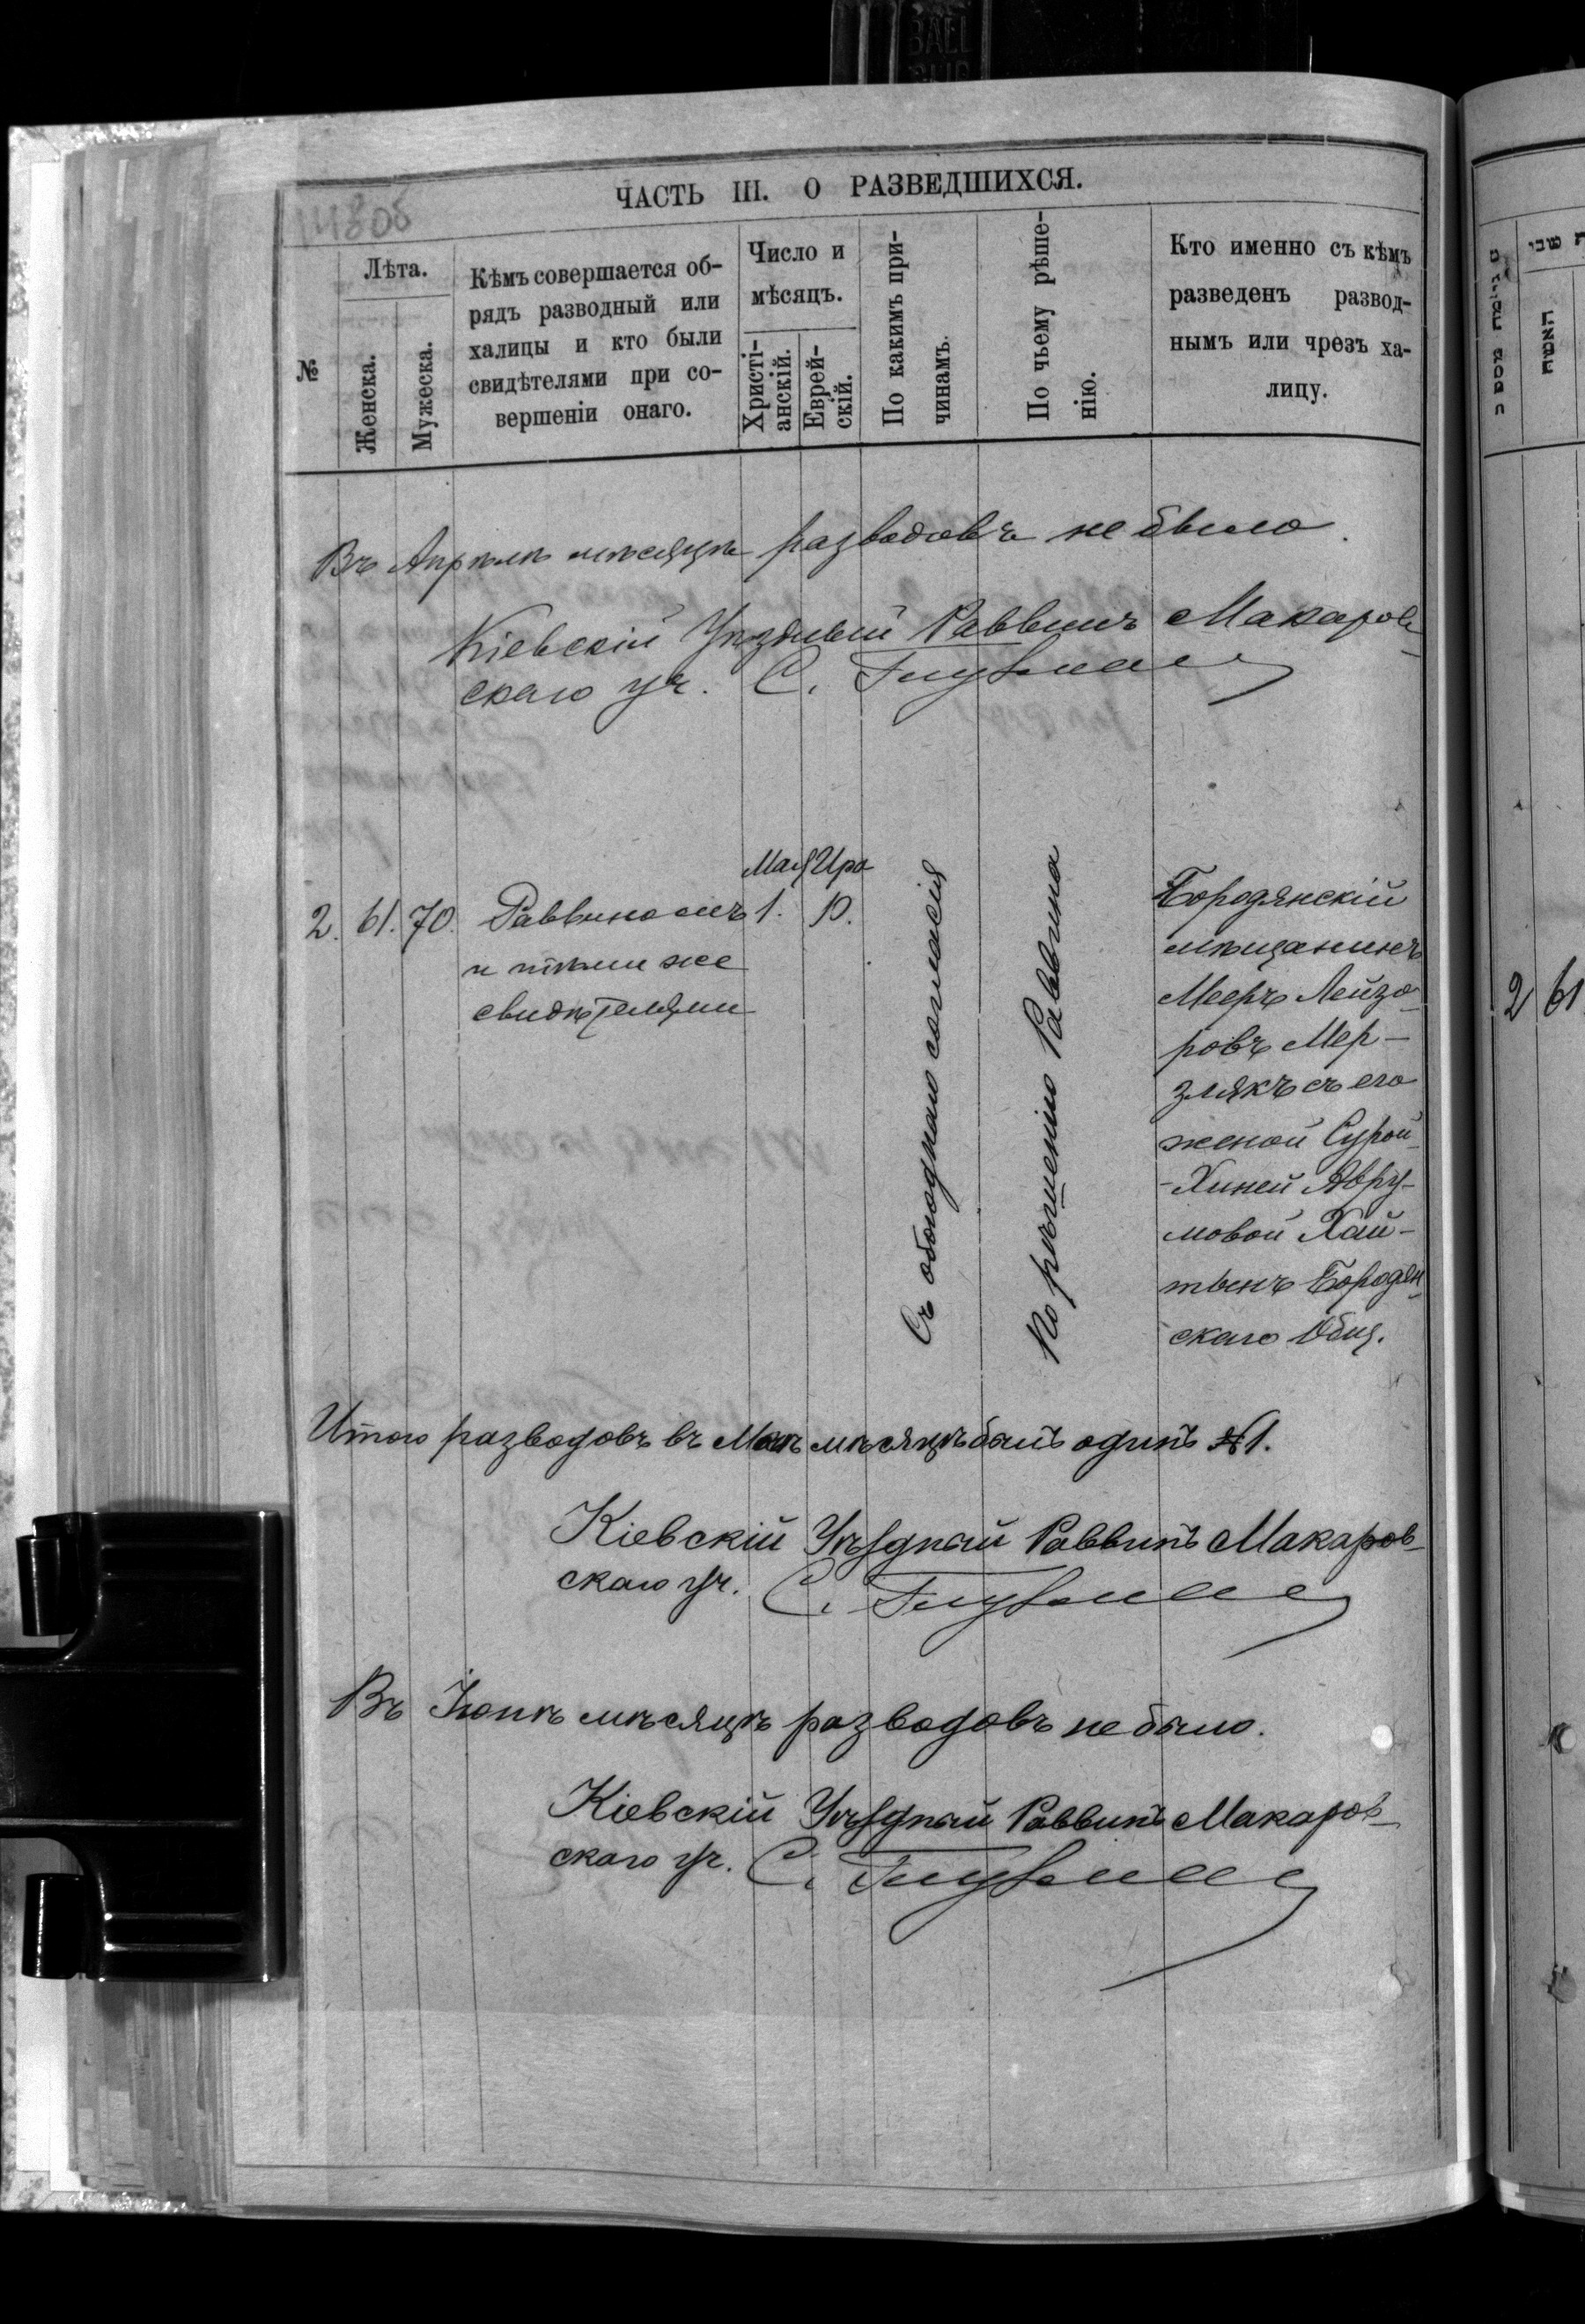 143об
ЧАСТЬ III. О РАЗВЕДШИХСЯ.
№
Лѣта.
Женска.
Мужеска.
Кѣмъ совершается об-
рядъ разводный или
халицы и кто были
свидѣтелями при со-
вершеніи онаго.
Число и
мѣсяцъ.
Христі-
анскій.
Еврей-
скій.
По какимъ при-
чинамъ.
По чьему рѣше-
нію.
Кто именно съ кѣмъ
разведенъ развод-
нымъ или чрезъ ха-
лицу.
Въ Апрѣлѣ мѣсяцѣ разводовъ не было.
Кіевскій Уѣздный Раввинъ Макаров-
скаго уч. С.
Мая Ира
2. 61. 70. Раввиномъ 1. 10.
и тѣми же
свидѣтелями
Съ обоюднаго согласія
По рѣшенію Раввина
Бородянскій
мѣщанинъ
Мееръ Лейзо-
ровъ Мер-
злякъ съ его
женой Сурой-
-Хиней Авру-
мовой Хай-
тынъ Бородян-
скаго Общ.
Итого разводовъ въ Маѣ мѣсяцѣ былъ одинъ №1.
Кіевскій Уѣздный Раввинъ Макаров-
скаго уч. С.
Въ Іюнѣ мѣсяцѣ разводовъ не было.
Кіевскій Уѣздный Раввинъ Макаров-
скаго уч. С.
האשה
2 61